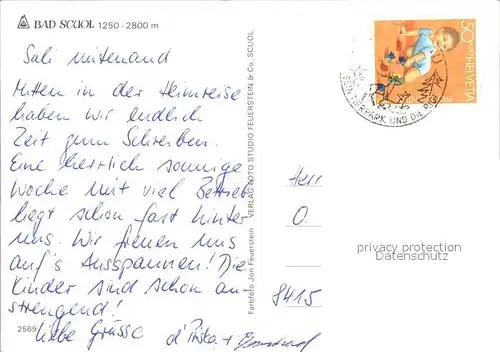 BAD SCUOL 1250-2800 m
Sali mitenand
Mitten in der Heimreise
haben wir endlich
Zeit zum Schreiben.
Eine herrlich sonnige
Woche mit viel Betrieb
liegt schon fast hinter
uns. Wir freuen uns
auf's Ausspannen! Die
Kinder sind schon an-
strengend!
Liebe Grüsse d'Priska +
2569
Farbfoto Jon Feuerstein VERLAG FOTO STUDIO FEUERSTEIN & Co. SCUOL
50 HELVETIA
TIERPARK UND DIE RIGI
Herr
O.
8415
privacy protection
Datenschutz